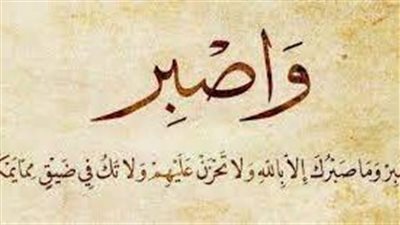 وَاصْبِر
بِرْ وَمَا صَبْرُكَ إِلَّا بِاللهِ وَلَا تَحْزَنْ عَلَيْهِمْ وَلَا تَكُ فِي ضَيْقٍ مِمَّا يَمْكُ